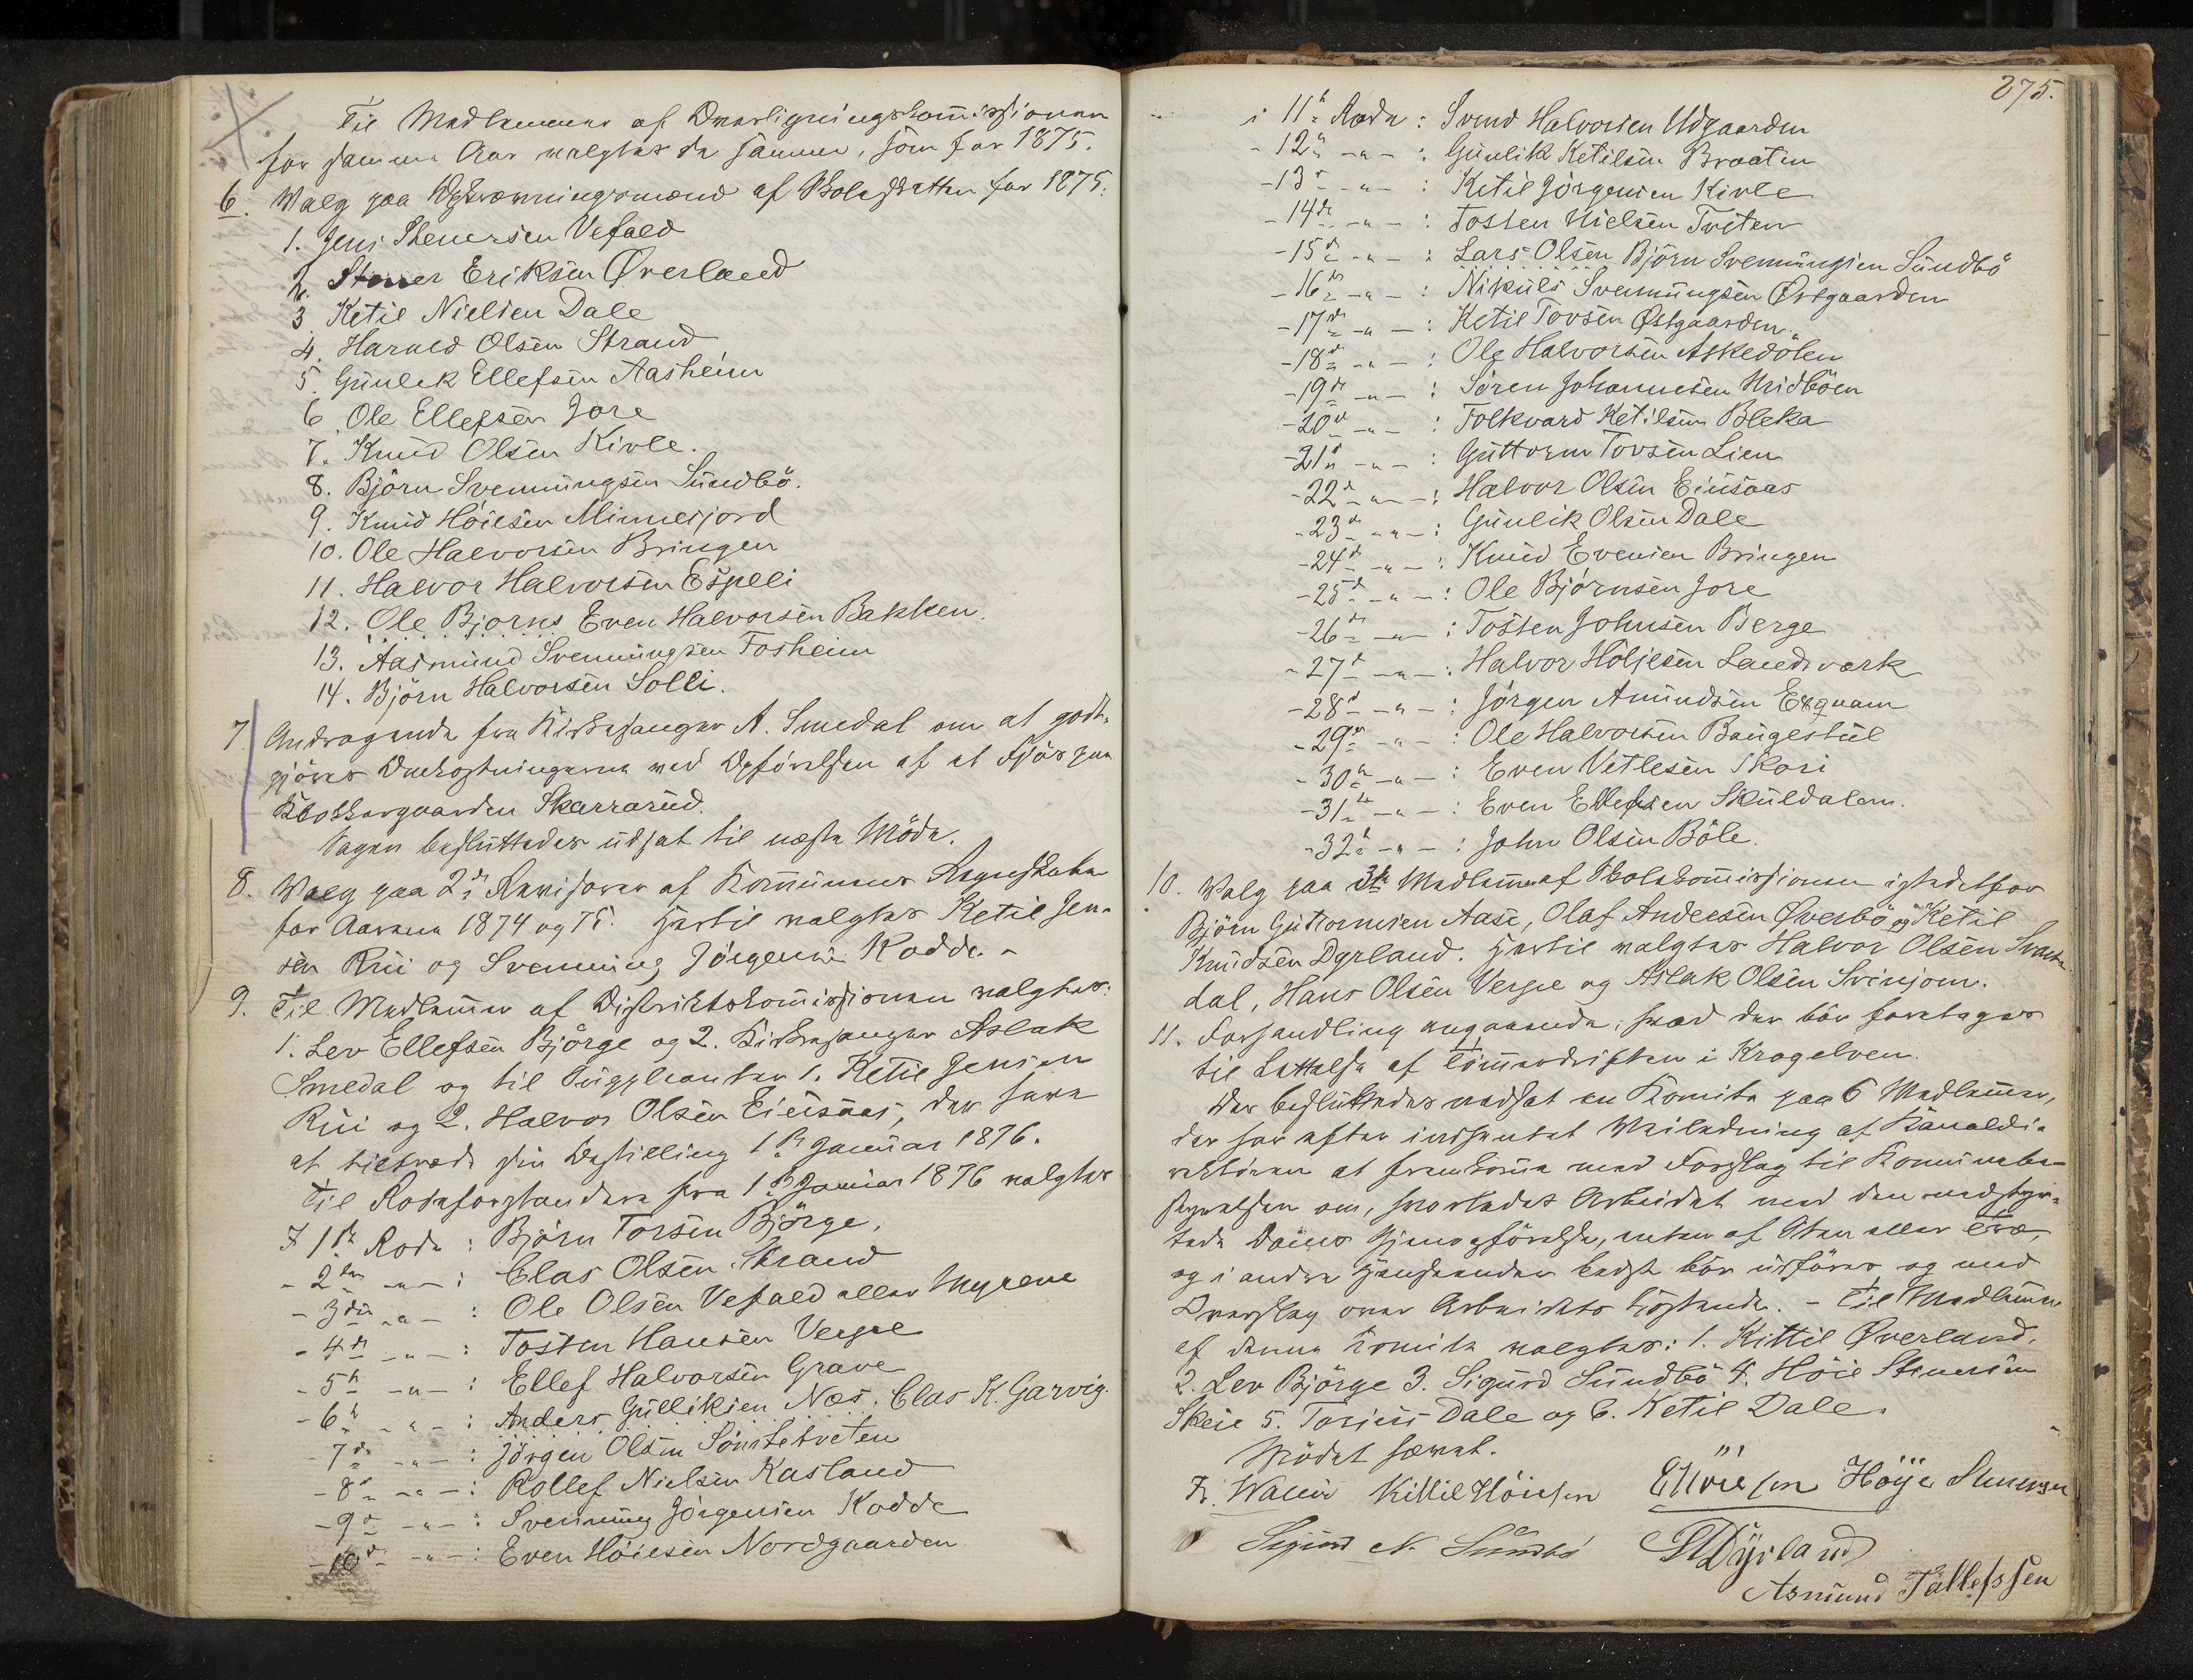 Til Medlemmer af Overligningskommissionen
for samme Aar valgtes de samme, som for 1875.
6. Valg paa Opkrævningsmænd af Skoleskatten for 1875:
1. Jens Stenersen Vefald
2. Stener Eriksen Øverland
3. Ketil Nielsen Dale
4. Harald Olsen Strand
5. Gunlek Ellefsen Aasheim
6. Ole Ellefsen Jore
7. Knud Olsen Kivle.
8. Björn Svenningsen Sundbö.
9. Knud Höilsen Minnesjord
10. Ole Halvorsen Bringen
11. Halvor Halvorsen Espeli
12. Ole Bjorns Even Halvorsen Bakken.
13. Aasmund Svenningsen Fosheim
14. Björn Halvorsen Solli.
7. Andragende fra Kirkesanger A. Smedal om at godt-
gjöres Omkostningerne ved Opförelsen af et Fjös paa
Klokkergaarden Skarrarud.
Sagen besluttedes udsat til næste Möde.
8. Valg paa 2de Revisorer af Kommunens Regnskaber
for Aarene 1874 og 75. Hertil valgtes Ketil Jen-
sen Rui og Svenning Jörgensen Kodde. -
9. Til Medlemmer af Distriktskommissionen valgtes:
1. Lev Ellefsen Björge og 2. Kirkesanger Aslak
Smedal og til Suppleanter 1. Ketil Jensen
Rui og 2. Halvor Olsen Einsaas, der have
at tiltræde sin Bestilling 1ste Januar 1876.
Til Rodeforstandere fra 1ste Januar 1876 valgtes
I 1ste Rode: Björn Torsen Björge.
- 2den -"- : Clas Olsen Strand
- 3die -"- : Ole Olsen Vefald eller Myrene
- 4de -"- : Tosten Hansen Vergje
- 5te -"- : Ellef Halvorsen Grave
- 6te -"- : Anders Gullikien Næs. Clas K. Garvig.
- 7de -"- : Jörgen Olsen Sönstetveten
- 8de -"- : Rollef Nielsen Kasland
- 9de -"- : Svenning Jörgensen Kodde
- 10de -"- : Even Höiesen Nordgaarden
275.
i 11te Rode: Svend Halvorsen Udgaarden
- 12te -"- : Gunlik Ketilsen Braaten
- 13de -"- : Ketil Jörgensen Kivle
- 14de -"- : Tosten Nielsen Tveten
- 15de -"- : Lars Olsen Björn Svenningsen Sundbö
- 16de -"- : Nikuls Svenningsen Østgaarden
- 17de -"- : Ketil Tovsen Østgaarden.
- 18de -"- : Ole Halvorsen Askedölen
- 19de -"- : Sören Johannesen Midböen
- 20de -"- : Folkvard Ketilsen Bleka
- 21de -"- : Guttorm Tovsen Lien
- 22de -"- : Halvor Olsen Einsaas
- 23de -"- : Gunlik Olsen Dale
- 24de -"- : Knud Evensen Bringen
- 25de -"- : Ole Björnsen Jore
- 26de -"- : Tosten Johnsen Berge
- 27de -"- : Halvor Höljesen Landsværk
- 28de -"- : Jörgen Amundsen Exquam
- 29de -"- : Ole Halvorsen Baugestul
- 30te -"- : Even Vetlesen Skori
- 31te -"- : Even Ellefsen Skuldalen.
- 32te -"- : John Olsen Böle.
10. Valg paa 3de Medlemmer af Skolekommissionen istedetfor
Björn Guttormsen Aase, Olaf Andersen Øverbö og Ketil
Knudsen Dyrland. Hertil valgtes Halvor Olsen Svarte
dal, Hans Olsen Vergje og Aslak Olsen Svinjom.
11. Forhandling angaaende, hvad der bör foretages
til Lettelse af Tömmerdriften i Kragelven.
Der besluttedes nedsat en Komite paa 6 Medlemmer,
der har efter indhentet Veiledning af Kanaldi-
rektören at fremkomme med Forslag til Kommunebe-
styrelsen om, hvorledes Arbeidet med den nedstyr-
tede Dams Gjenopförelse, enten af Sten eller Træ,
og i andre Henseender bedst bör udföres og med
Overslag over Arbeidets Kostende. - Til Medlemmer
af denne Komite valgtes: 1. Kittil Øverland.
2. Lev Björge 3. Sigurd Sundbö 4. Höie Stenersen
Skeie 5. Torjus Dale og 6. Ketil Dale.
Mödet hævet.
Kittil Höiesen Höije Stenersen
Sigurd N. Sundbö Dyrland
Asmund Tallefssen